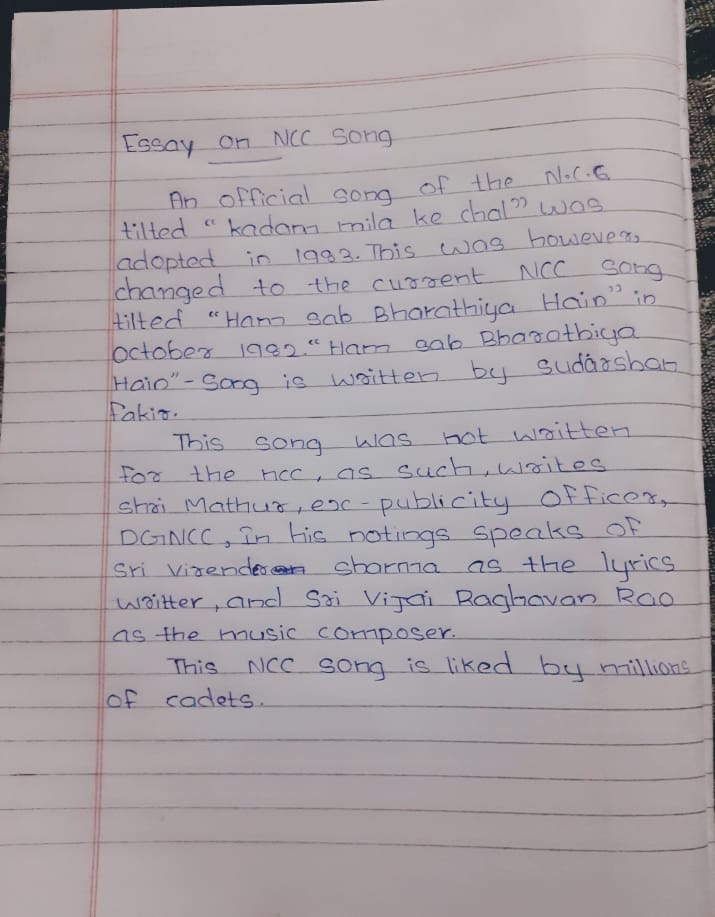 Essay on NCC Song
An official song of the N.C.C
tilted "kadam mila ke chal" was
adopted in 1983. This was however,
changed to the current NCC song
tilted "Ham sab Bharathiya Hain" in
october 1982. "Ham sab Bharathiya
Hain" - Song is written by sudarshan
fakir.
This song was not written
for the ncc, as such, writes
shri Mathur, ex-publicity officer,
DGNCC, in his notings speaks of
Sri Virender sharma as the lyrics
writter, and Sri Vijai Raghavan Rao
as the music composer.
This NCC song is liked by millions
of cadets.